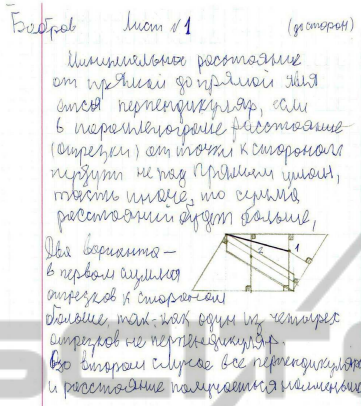 Бобров Лист №1 (до сторон)
Минимальное расстояние
от прямой до прямой явл
яется перпендикуляр, если
в параллелограмме расстояние
(отрезки) от точки к сторонам
не под прямым углом,
иначе, то сумма
расстояний будет больше,
Два варианта –
в первом сумма
отрезков к сторонам
больше, так как один из четырех
отрезков не перпендикуляр,
Во втором случае все перпендикуляры
и расстояние получается наименьшее
1
2